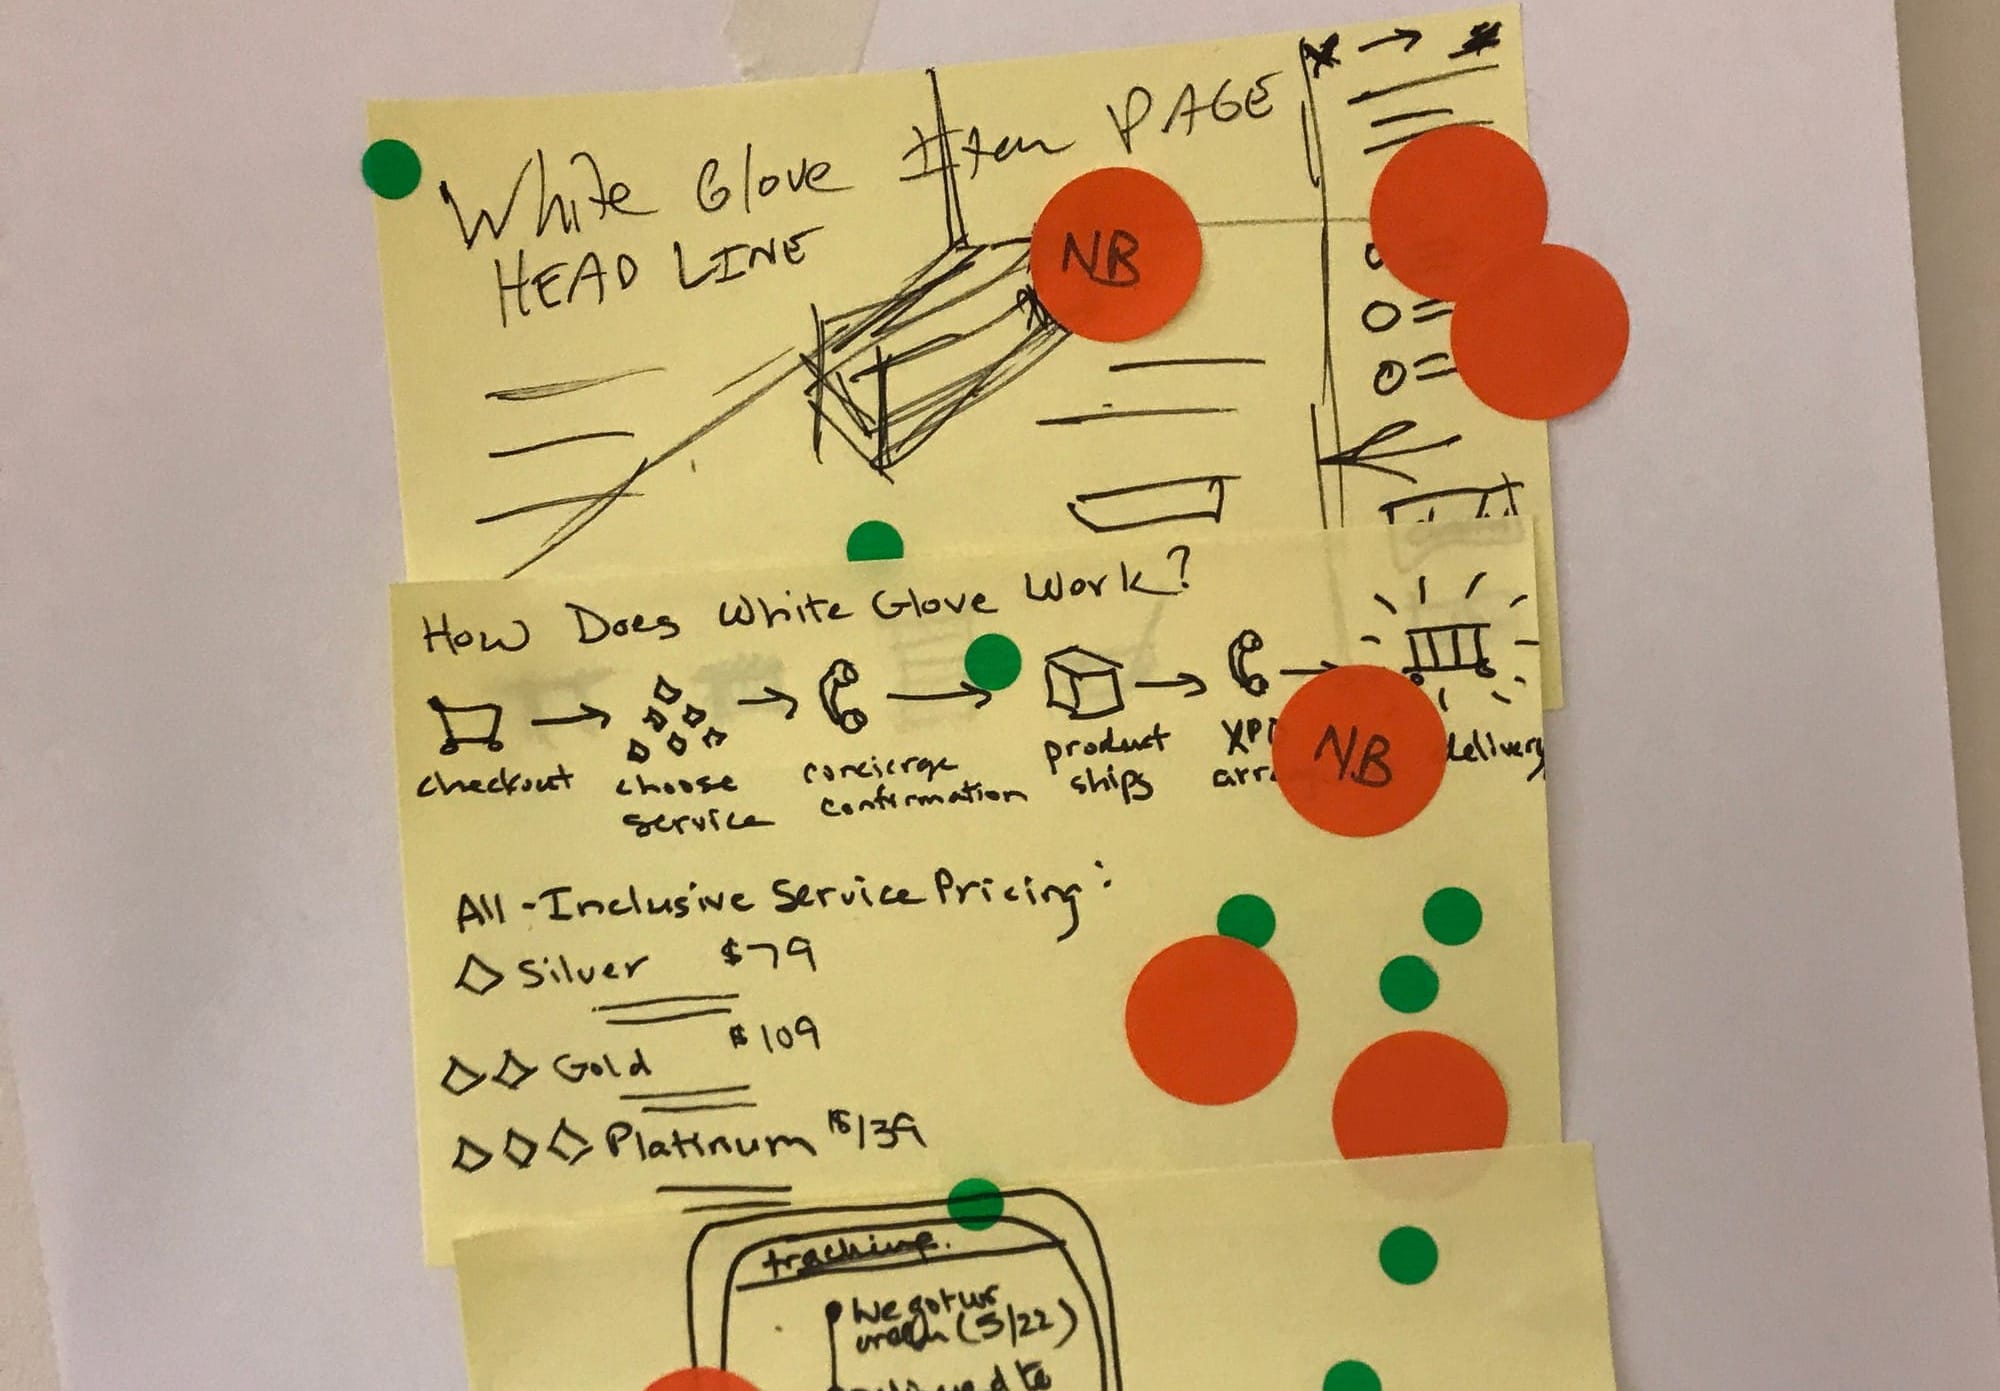 White Glove Item PAGE
HEAD LINE
NB
How Does White Glove Work?
checkout
choose
service
concierge
confirmation
product
ships
XP
arr
NB
delivery
All-Inclusive Service Pricing:
Silver $79
Gold $109
Platinum $139
tracking.
We got ur
(5/22)